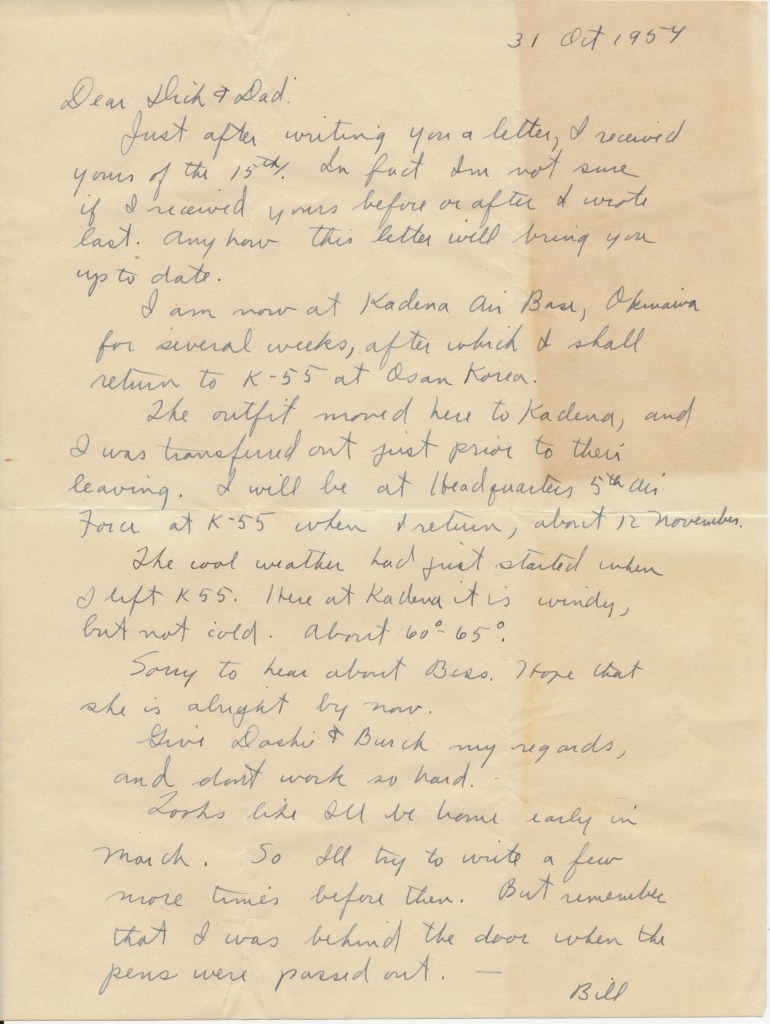 31 Oct 1954
Dear Dick & Dad:
Just after writing you a letter, I received
yours of the 15th. In fact Im not sure
if I received yours before or after I wrote
last. Anyhow this letter will bring you
up to date.
I am now at Kadena Air Base, Okinawa
for several weeks, after which I shall
return to K-55 at Osan Korea.
The outfit moved here to Kadena, and
I was transferred out just prior to their
leaving. I will be at Headquarters 5th Air
Force at K-55 when I return, about 12 November.
The cool weather had just started when
I left K55. Here at Kadena it is windy,
but not cold. About 60°-65°.
Sorry to hear about Bess. Hope that
she is alright by now.
Give & Burch my regards,
and dont work so hard.
Looks like Ill be home early in
March. So Ill try to write a few
more times before then. But remember
that I was behind the door when the
pens were passed out. —
Bill